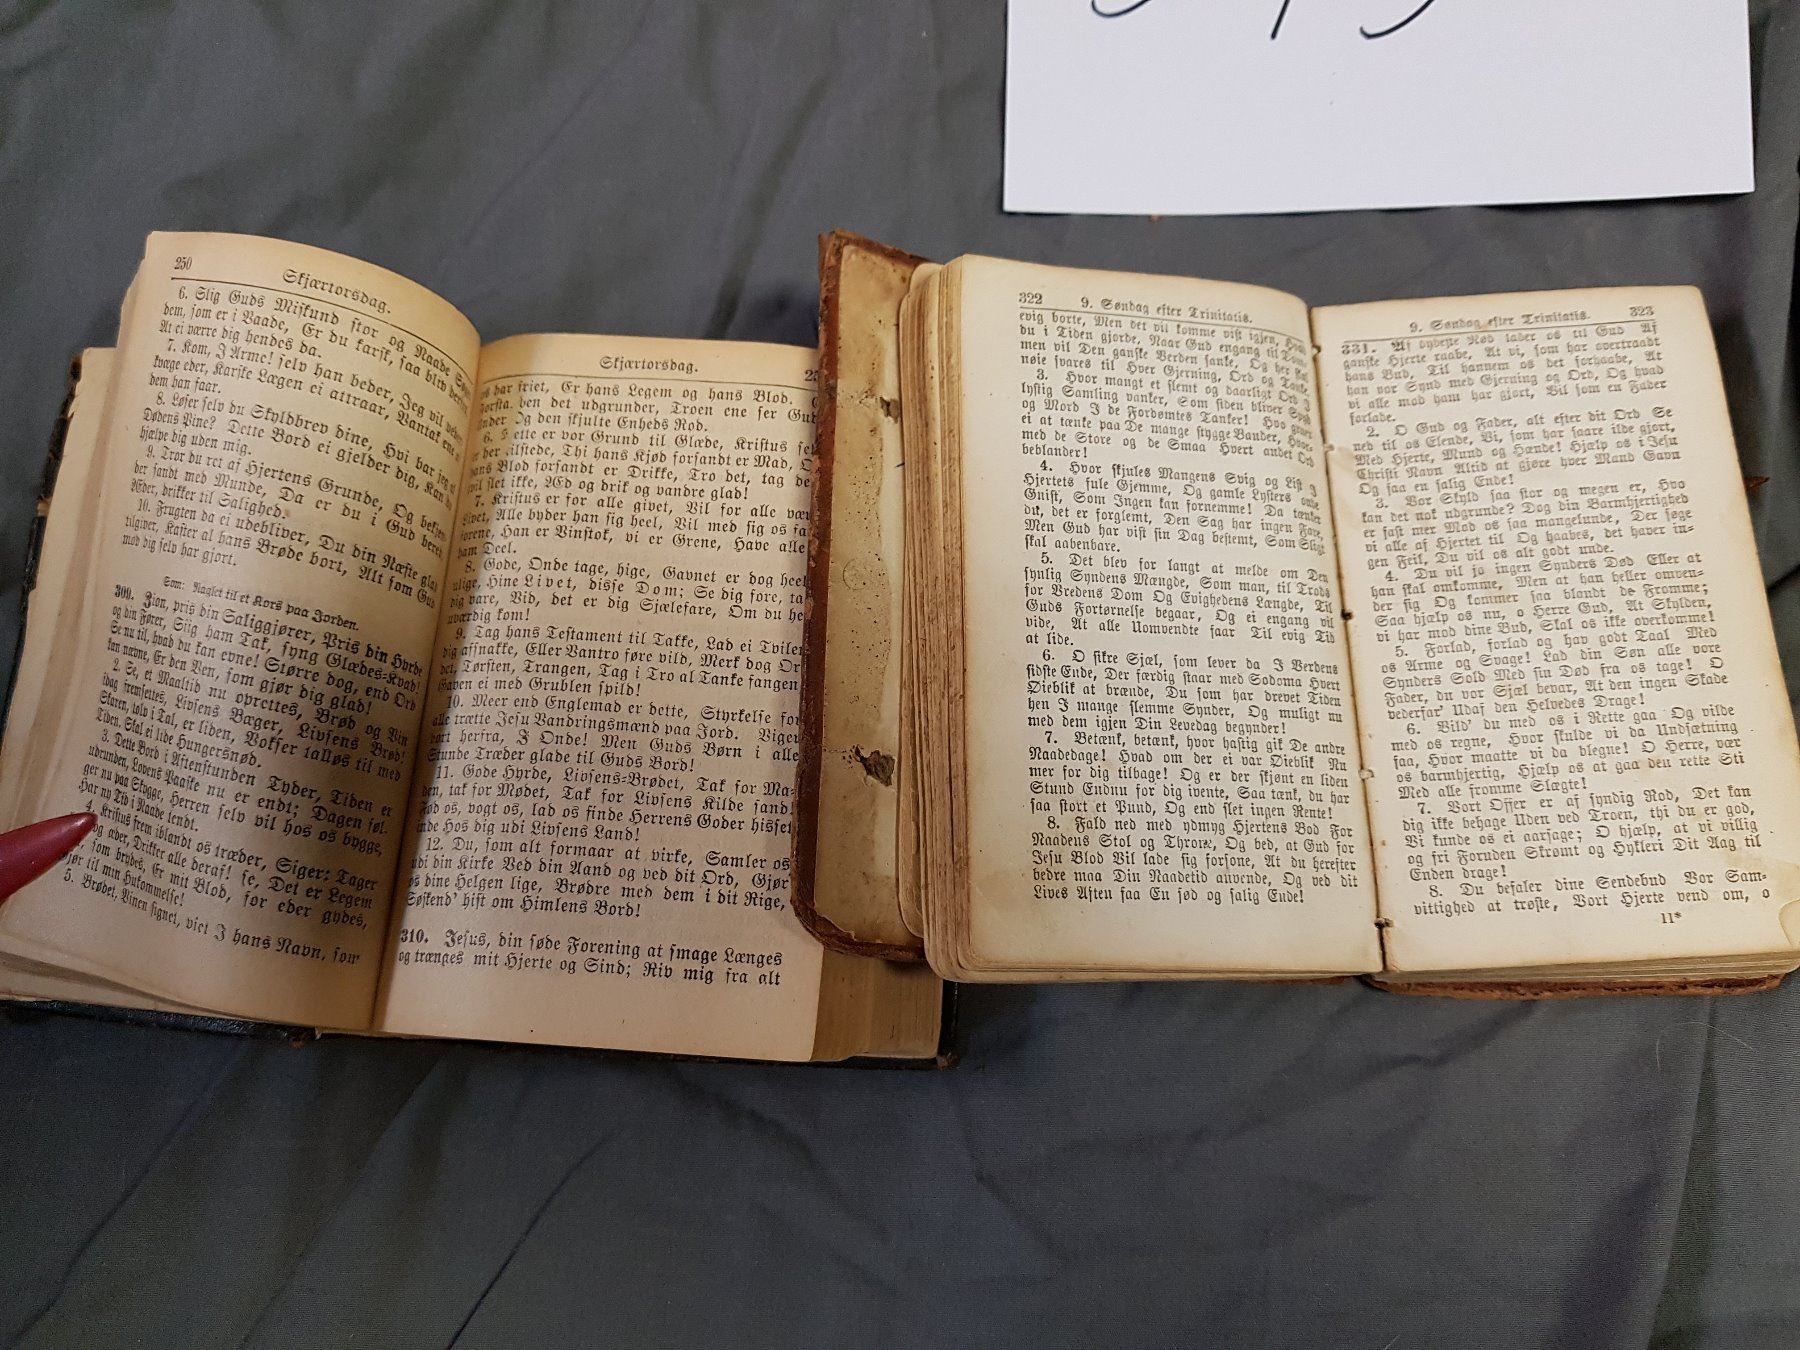 250
Skjærtorsdag.
6. Slig Guds Miskund stor og Naade
dem, som er i Vaade, Er du karsk, saa bliv
At ei værre dig hendes da.
7. Kom, I Arme! selv han beder, Jeg vil
kvæge eder, Karske Lægen ei attraar, Vantak ene
dem han faar.
8. Løser selv du Skyldbrev dine, Hvi bar jeg
Dødens Pine? Dette Bord ei gjelder dig, Kan du
hjælpe dig uden mig.
9. Tror du ret af Hjertens Grunde, Og
der sandt med Munde, Da er du i Gud beredt
Æder, drikker til Salighed.
10. Frugten da ei udebliver, Du din Næste glad
tilgiver, Kaster al hans Brøde bort, Alt som Gud
mod dig selv har gjort.
Som: Naglet til et Kors paa Jorden.
309. Zion, pris din Saliggjører, Pris din Hyrde
og din Fører, Siig ham Tak, syng Glædes-Kvad!
Se nu til, hvad du kan evne! Større dog, end Ord
kan nævne, Er den Ven, som gjør dig glad!
2. Se, et Maaltid nu oprettes, Brød og Vin
idag fremsettes, Livsens Bager, Livsens Brød!
Skaren, tolv i Tal, er liden, Vokser talløs til med
Tiden, Skal ei lide Hungersnød.
3. Dette Bord i Aftenstunden Tyder, Tiden er
udrunden, Lovens Paaske nu er endt; Dagen føl-
ger nu paa Skygge, Herren selv vil hos os bygge,
Har ny Tid i Naade lendt.
4. Kristus frem iblandt os træder, Siger: Tager
og æder, Drikker alle deraf! se, Det er Legem
som brydes, Er mit Blod, for eder gydes,
Gjør til min Hukommelse!
5. Brødet, Vinen signet, viet I hans Navn, som
Skjærtorsdag.
os har friet, Er hans Legem og hans Blod.
Forsta den det udgrunder, Troen ene ser Guds
Under Og den skjulte Enheds Rod.
6. Dette er vor Grund til Glæde, Kristus selv
er her tilstede, Thi hans Kjød forsandt er Mad, Og
hans Blod forsandt er Drikke, Tro det, tag det
vil slet ikke, Æd og drik og vandre glad!
7. Kristus er for alle givet, Vil for alle være
Livet, Alle byder han sig heel, Vil med sig os
forene, Han er Vinstok, vi er Grene, Have alle
ham Deel.
8. Gode, Onde tage, hige, Gavnet er dog heel
ulige, Hine Livet, disse Dom; Se dig fore, tag
dig vare, Vid, det er dig Sjælefare, Om du
uværdig kom!
9. Tag hans Testament til Takke, Lad ei Tvilen
dig afsnakke, Eller Vantro føre vild, Merk dog Or-
det, Tørsten, Trangen, Tag i Tro al Tanke fangen,
Gaven ei med Grublen spild!
10. Meer end Englemad er dette, Styrkelse for
alle trætte Jesu Vandringsmænd paa Jord. Viger
bort herfra, I Onde! Men Guds Børn i alle
Stunde Træder glade til Guds Bord!
11. Gode Hyrde, Livsens-Brødet, Tak for Ma-
den, tak for Mødet, Tak for Livsens Kilde sand!
Fød os, vogt os, lad os finde Herrens Goder hisset
inde Hos dig udi Livsens Land!
12. Du, som alt formaar at virke, Samler os
udi din Kirke Ved din Aand og ved dit Ord, Gjør
os dine Helgen lige, Brødre med dem i dit Rige,
Søskend' hist om Himlens Bord!
310. Jesus, din søde Forening at smage Længes
og trænges mit Hjerte og Sind; Riv mig fra alt
322
9. Søndag efter Trinitatis.
evig borte, Men det vil komme vist igjen, Hvad
du i Tiden gjorde, Naar Gud engang til Doms
men vil Den ganske Verden sanke, Og her skal
nøie svares til Hver Gjerning, Ord og Tanke.
3. Hvor mangt et slemt og daarligt Ord I
lystig Samling vanker, Som siden bliver Synd
og Mord I de Fordømtes Tanker! Hvo gruer
ei at tænke paa De mange stygge Bander, Hvor-
med de Store og de Smaa Hvert andet Ord
beblander!
4. Hvor skjules Mangens Svig og List I
Hjertets fule Gjemme, Og gamle Lysters onde
Gnist, Som Ingen kan fornemme! Da tænker
du, det er forglemt, Den Sag har ingen Fare,
Men Gud har vist sin Dag bestemt, Som Sligt
skal aabenbare.
5. Det blev for langt at melde om Den
synlig Syndens Mængde, Som man, til Trods
for Vredens Dom Og Evighedens Længde, Til
Guds Fortørnelse begaar, Og ei engang vil
vide, At alle Uomvendte faar Til evig Tid
at lide.
6. O sikre Sjæl, som lever da I Verdens
sidste Ende, Der færdig staar med Sodoma Hvert
Øieblik at brænde, Du som har drevet Tiden
hen I mange slemme Synder, Og muligt nu
med dem igjen Din Levedag begynder!
7. Betænk, betænk, hvor hastig gik De andre
Naadedage! Hvad om der ei var Øieblik Nu
mer for dig tilbage! Og er der skjønt en liden
Stund Endnu for dig ivente, Saa tænk, du har
saa stort et Pund, Og end slet ingen Rente!
8. Fald ned med ydmyg Hjertens Bod For
Naadens Stol og Throne, Og bed, at Gud for
Jesu Blod Vil lade sig forsone, At du herefter
bedre maa Din Naadetid anvende, Og ved dit
Lives Aften faa En sød og salig Ende!
9. Søndag efter Trinitatis.
323
331. Af dybeste Nød lader os til Gud Af
ganske Hjerte raabe, At vi, som har overtraadt
hans Bud, Til hannem os det forhaabe, At
han vor Synd med Gjerning og Ord, Og hvad
vi alle mod ham har gjort, Vil som en Fader
forlade.
2. O Gud og Fader, alt efter dit Ord Se
ned til os Elende, Vi, som har saare ilde gjort,
Med Hjerte, Mund og Hænde! Hjælp os i Jesu
Christi Navn Altid at gjøre hver Mand Gavn
Og faa en salig Ende!
3. Vor Skyld saa stor og megen er, Hvo
kan det nok udgrunde? Dog din Barmhjertighed
er fast mer Mod os saa mangelunde, Der søge
vi alle af Hjertet til Og haabes, det haver in-
gen Feil, Du vil os alt godt unde.
4. Du vil jo ingen Synders Død Eller at
han skal omkomme, Men at han heller omven-
der sig Og kommer saa blandt de Fromme;
Saa hjælp os nu, o Herre Gud, At Skylden,
vi har mod dine Bud, Skal os ikke overkomme!
5. Forlad, forlad og hav godt Taal Med
os Arme og Svage! Lad din Søn alle vore
Synders Sold Med sin Død fra os tage! O
Fader, du vor Sjæl bevar, At den ingen Skade
vederfar' Udaf den Helvedes Drage!
6. Vild' du med os i Rette gaa Og vilde
med os regne, Hvor skulde vi da Undsætning
faa, Hvor maatte vi da blegne! O Herre, vær
os barmhjertig, Hjælp os at gaa den rette Sti
Med alle fromme Slægte!
7. Vort Offer er af syndig Rod, Det kan
dig ikke behage Uden ved Troen, thi du er god,
Vi kunde os ei aarsage; O hjælp, at vi villig
og fri Foruden Skrømt og Hykleri Dit Aag til
Enden drage!
8. Du befaler dine Sendebud Vor Sam-
vittighed at trøste, Vort Hjerte vend om, o
11*